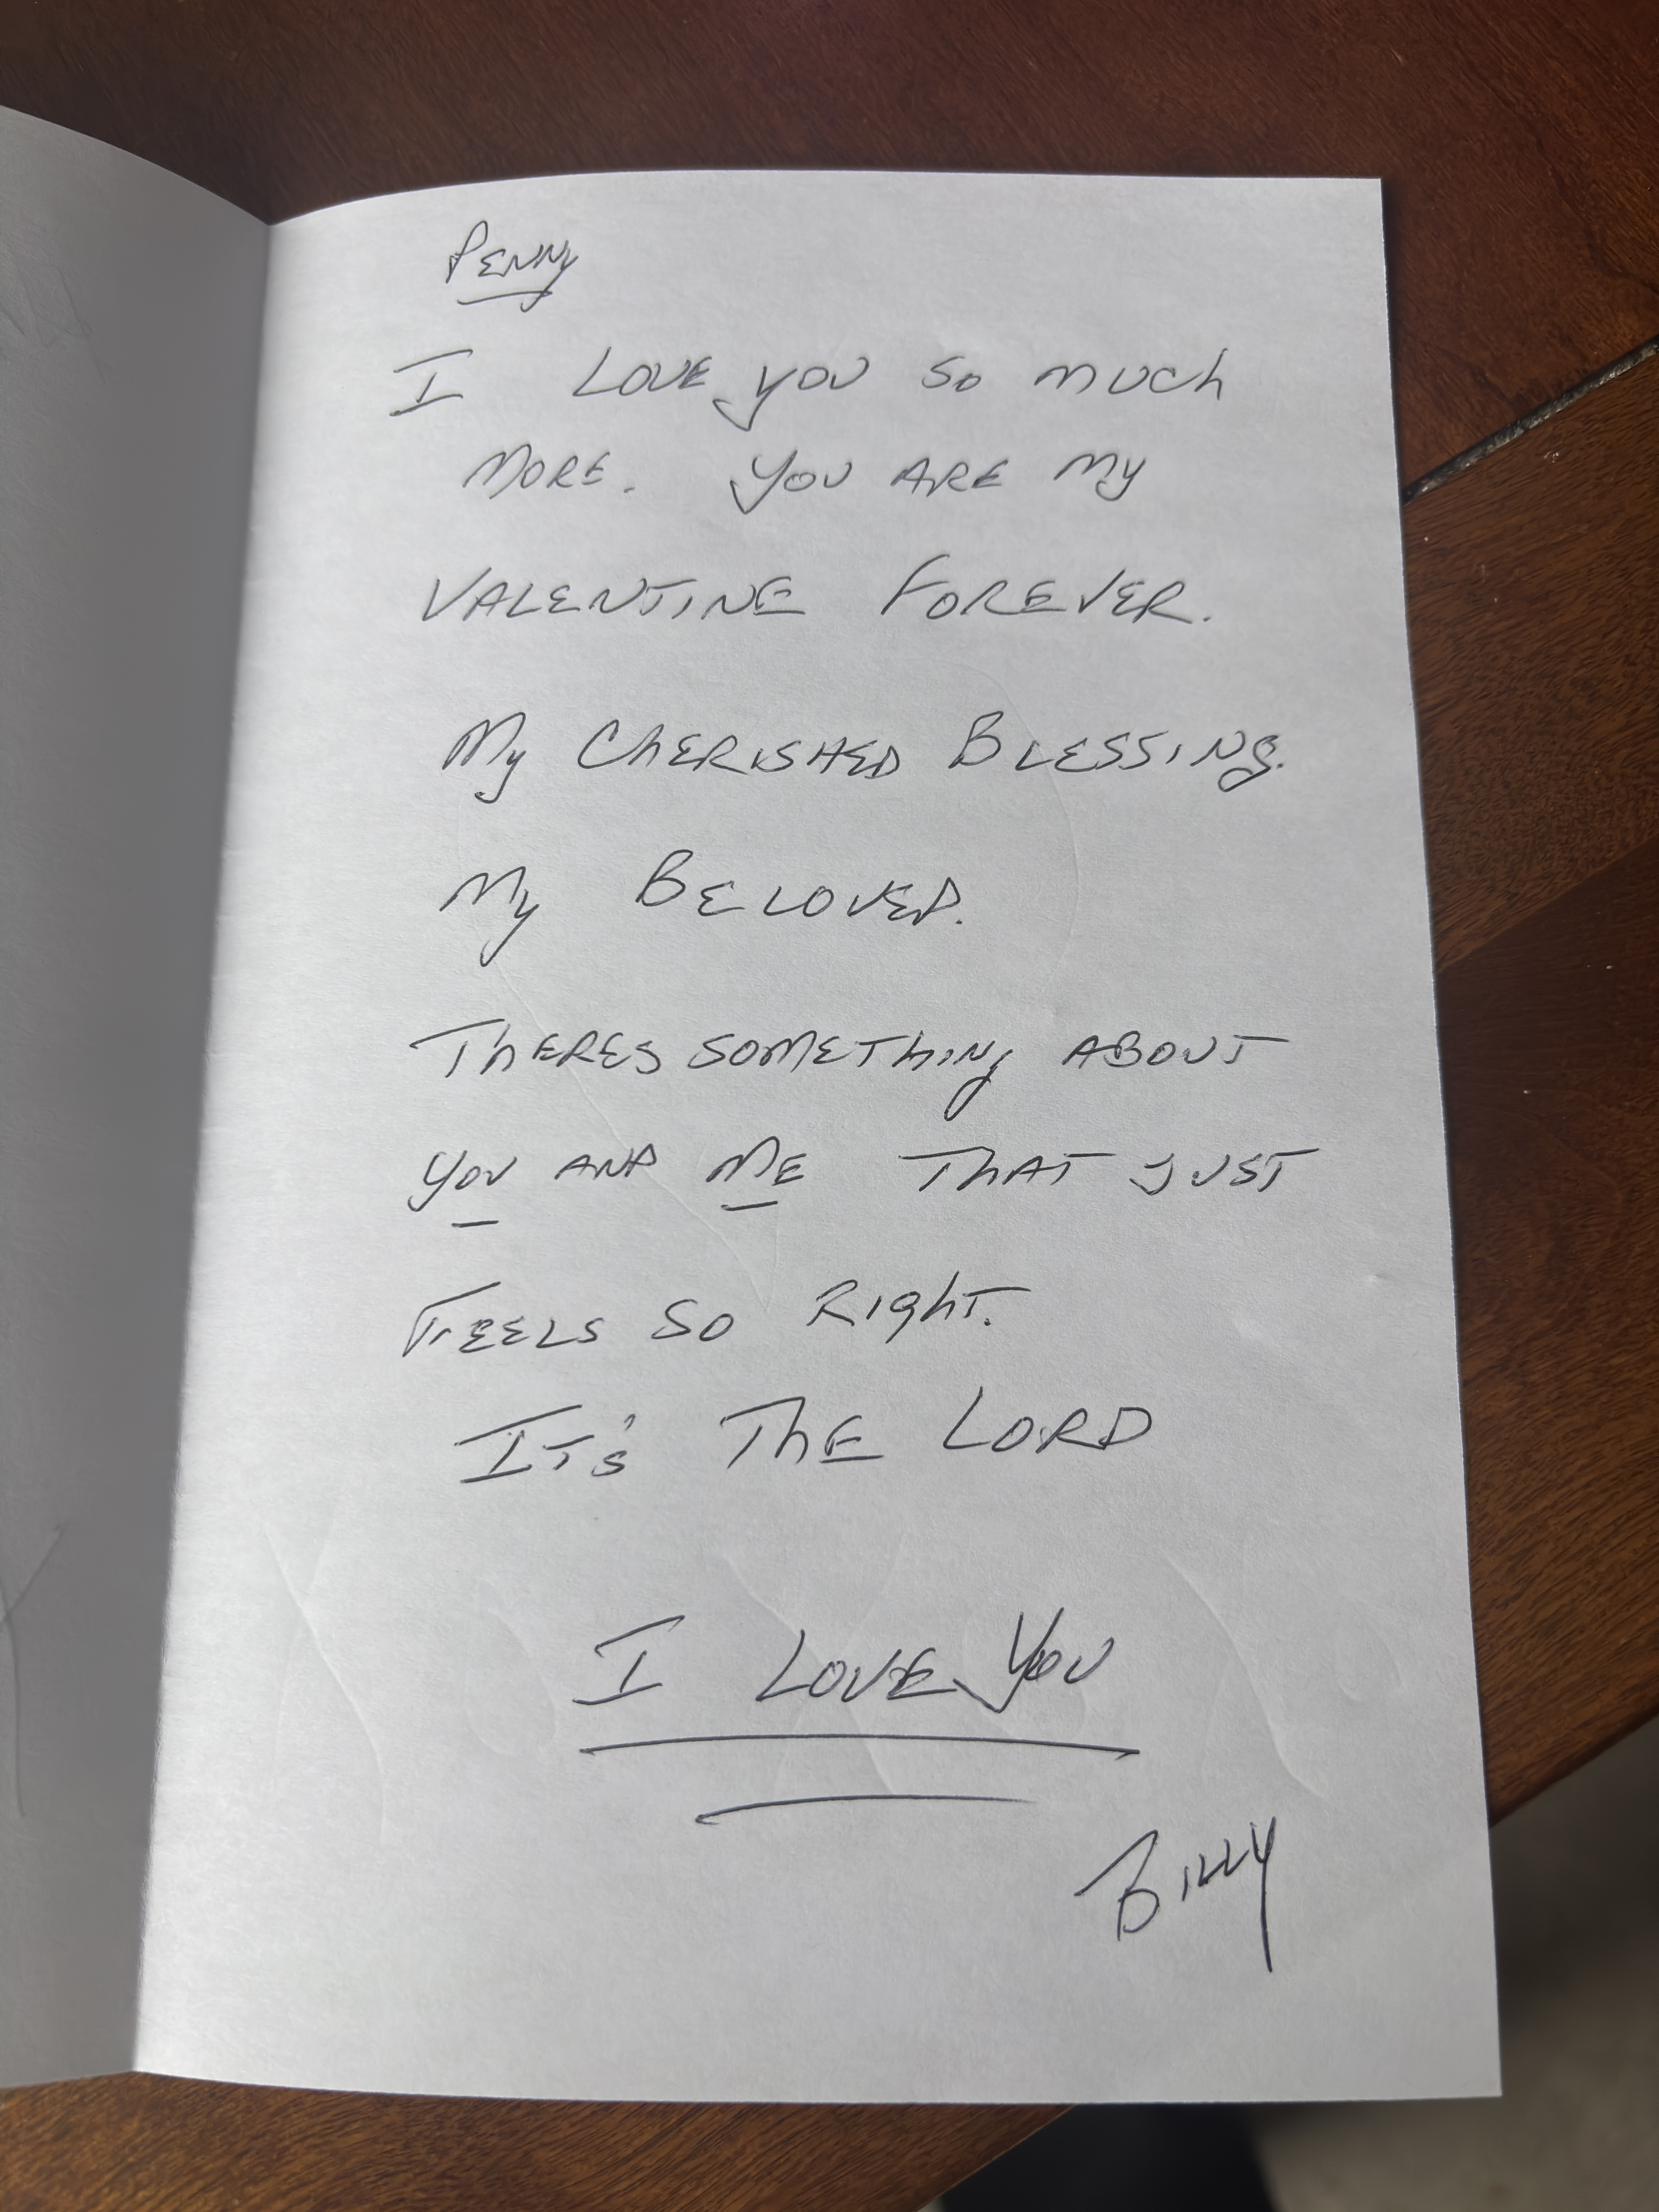 Penny
I LOVE you so much
MORE. you ARE my
VALENTINE FOREVER.
My ChERISHED BLESSINg.
My BELOVED.
ThERES SOMEThINg ABOUT
you AND ME ThAT JUST
FEELS SO RIghT.
IT'S ThE LORD
I LOVE you
BILLY